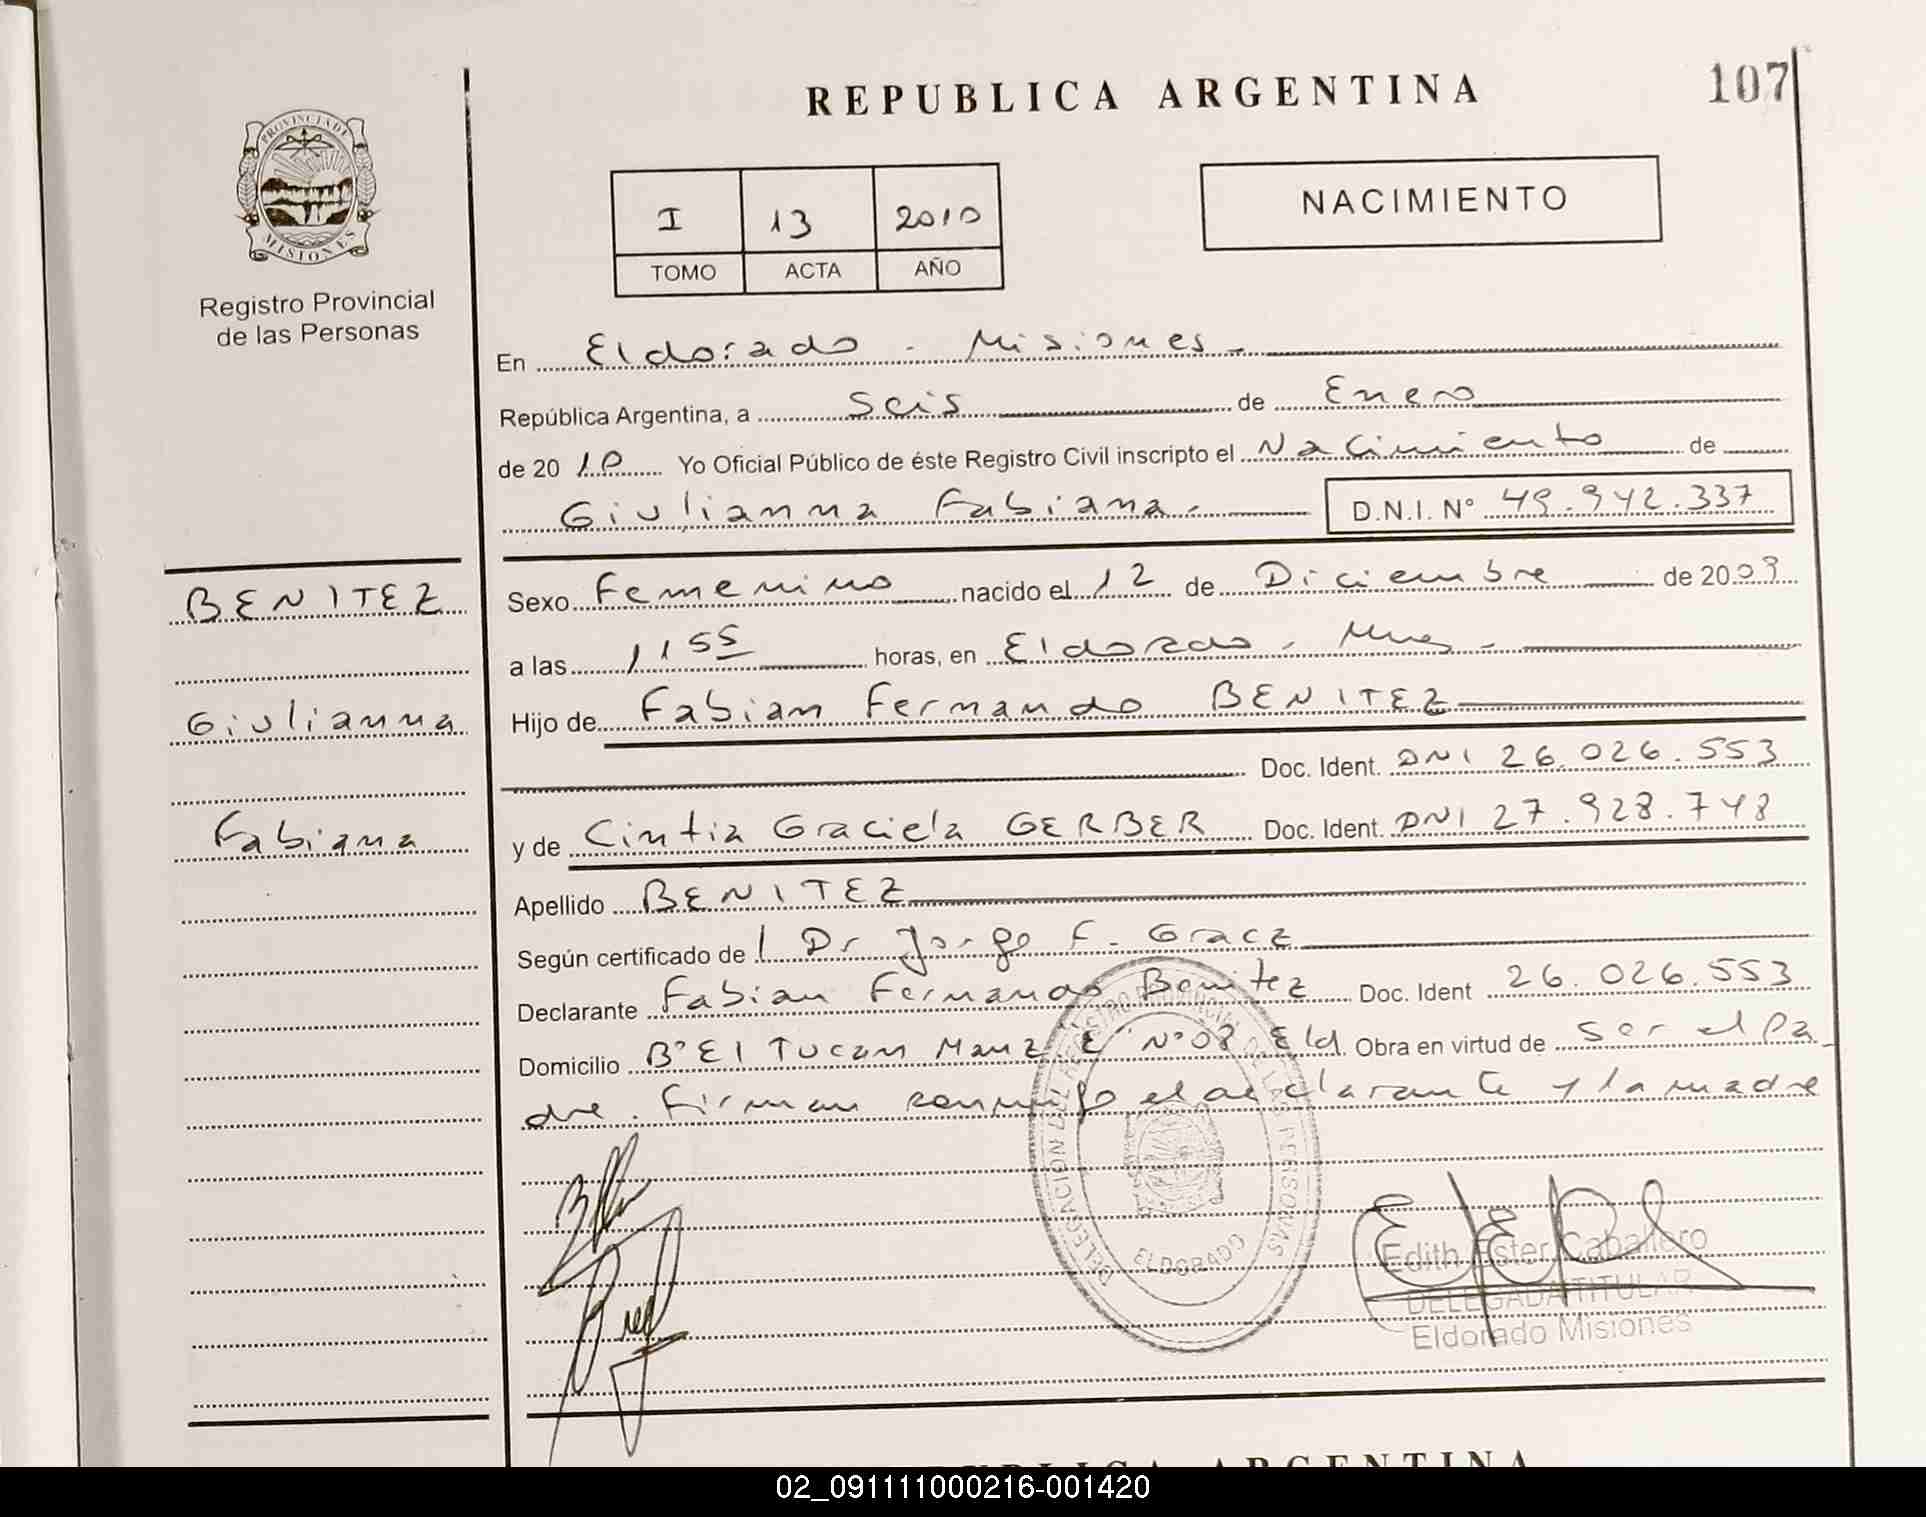 REPUBLICA ARGENTINA
107
PROVINCIA DE
MISIONES
Registro Provincial
de las Personas
I 13 2010
TOMO ACTA AÑO
NACIMIENTO
En Eldorado - Misiones -
República Argentina, a Seis de Enero
de 20 10 Yo Oficial Público de éste Registro Civil inscripto el Nacimiento de
Giulianna Fabiana.- D.N.I. N° 49.942.337
BENITEZ
Giulianna
Fabiana
Sexo Femenino nacido el 12 de Diciembre de 2009
a las 11 55 horas, en Eldorado - Mnes -
Hijo de Fabian Fernando BENITEZ
Doc. Ident. DNI 26.026.553
y de Cintia Graciela GERBER Doc. Ident. DNI 27.928.748
Apellido BENITEZ
Según certificado de l Dr Jorge F. Gracz
Declarante Fabian Fernando Benitez Doc. Ident 26.026.553
Domicilio B° El Tucan Manz E N° 08 Eld. Obra en virtud de Ser el Pa
dre. Firman el declarante y la madre
DELEGACIÓN DEL REGISTRO PROVINCIAL DE LAS PERSONAS
ELDORADO
Edith Ester Caballero
DELEGADA TITULAR
Eldorado Misiones
REPUBLICA ARGENTINA
02_091111000216-001420